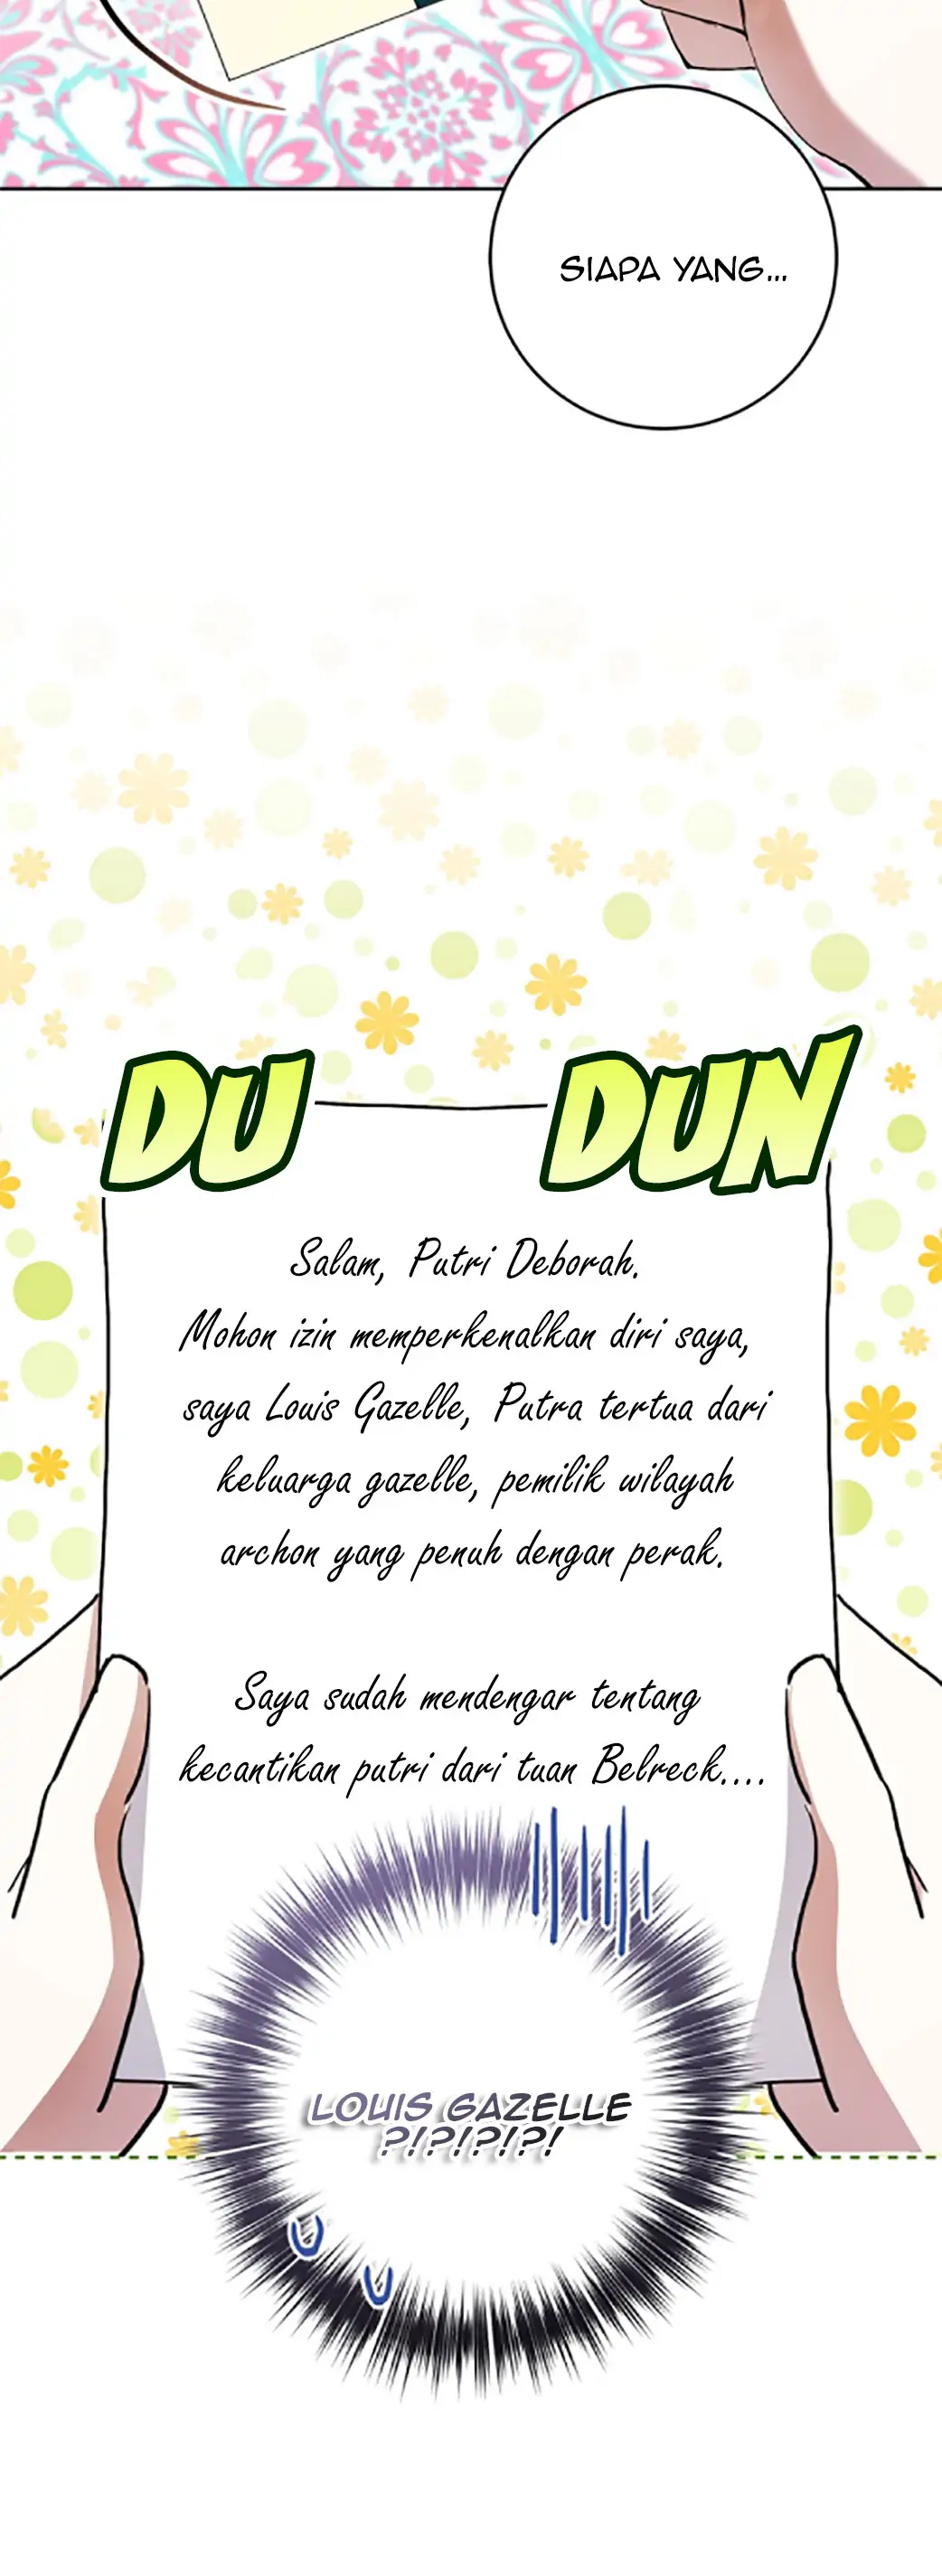 SIAPA YANG...
DU DUN
Salam, Putri Deborah.
Mohon izin memperkenalkan diri saya,
saya Louis Gazelle, Putra tertua dari
keluarga gazelle, pemilik wilayah
archon yang penuh dengan perak.
Saya sudah mendengar tentang
kecantikan putri dari tuan Belreck....
LOUIS GAZELLE
?!?!?!?!